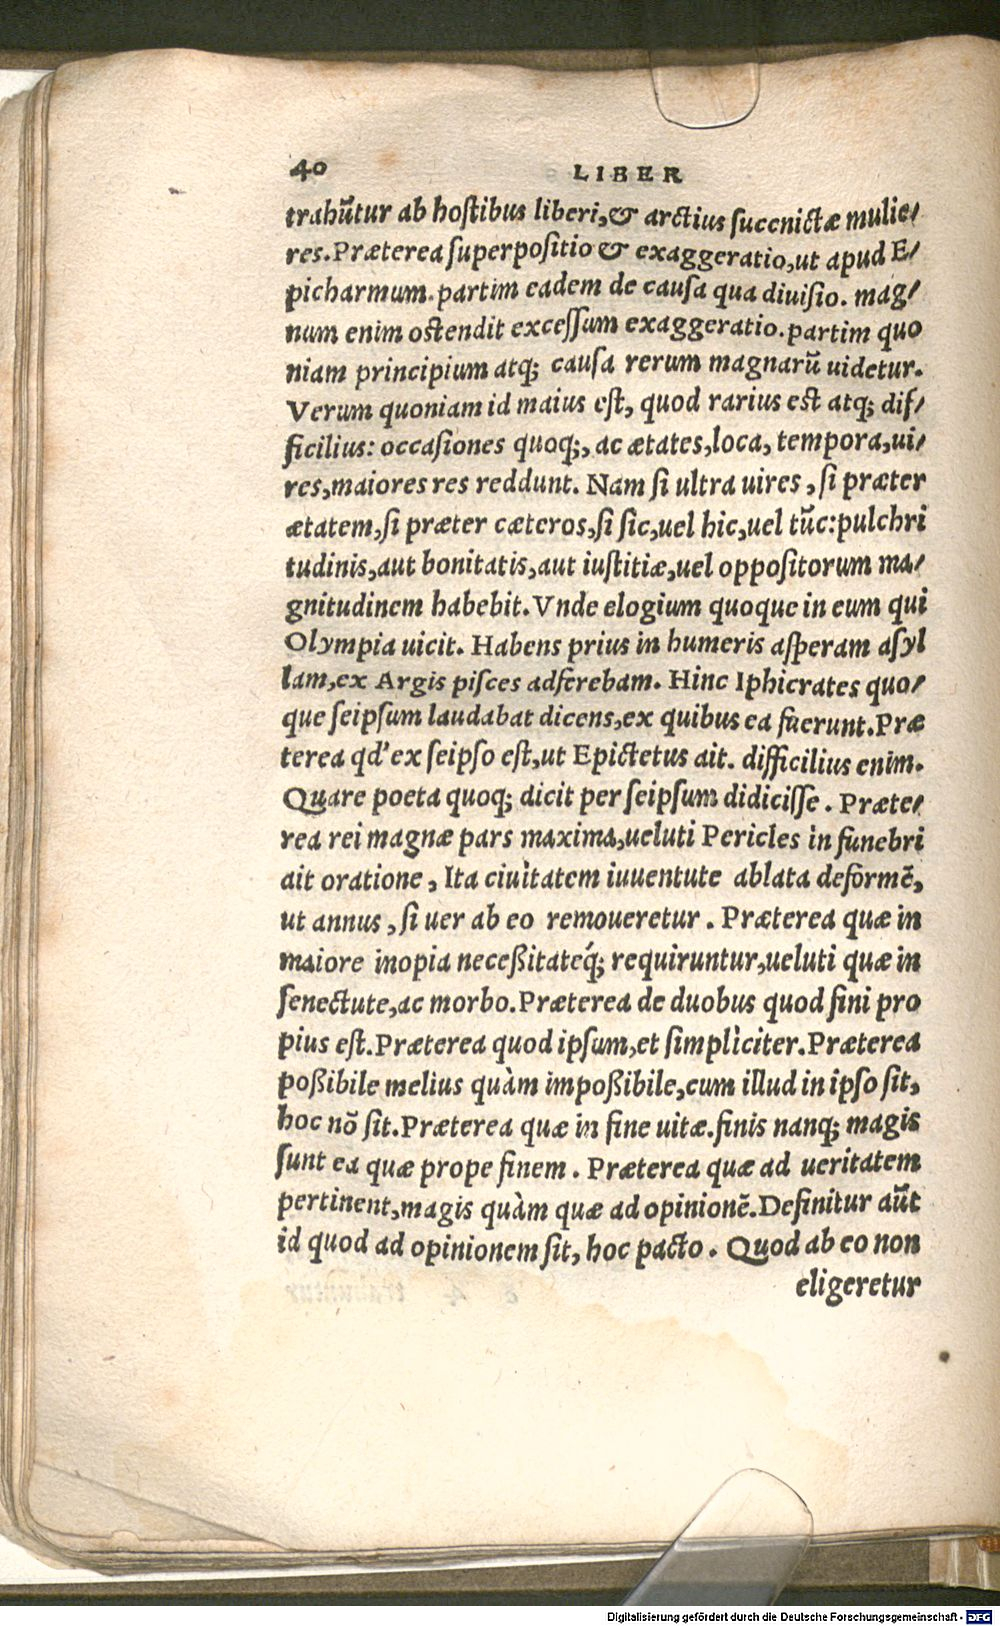 40 LIBER
trahũtur ab hoſtibus liberi,& arctius ſuccnictæ mulie/
res.Præterea ſuperpoſitio & exaggeratio,ut apud E/
picharmum.partim eadem de cauſa qua diuiſio. mag/
num enim oſtendit exceſſum exaggeratio.partim quo
niam principium atq; cauſa rerum magnarũ uidetur.
Verum quoniam id maius eſt, quod rarius eſt atq; dif/
ficilius: occaſiones quoq;, ac ætates,loca, tempora,ui/
res,maiores res reddunt. Nam ſi ultra uires, ſi præter
ætatem,ſi præter cæteros,ſi ſic,uel hic,uel tũc:pulchri
tudinis,aut bonitatis,aut iuſtitiæ,uel oppoſitorum ma/
gnitudinem habebit.Vnde elogium quoque in eum qui
Olympia uicit. Habens prius in humeris aſperam aſyl
lam,ex Argis piſces adferebam. Hinc Iphicrates quo/
que ſeipſum laudabat dicens,ex quibus ea fuerunt.Præ
terea qd' ex ſeipſo eſt,ut Epictetus ait. difficilius enim.
Quare poeta quoq; dicit per ſeipſum didiciſſe. Præte/
rea rei magnæ pars maxima,ueluti Pericles in funebri
ait oratione, Ita ciuìtatem iuuentute ablata deformẽ,
ut annus, ſi uer ab eo remoueretur. Præterea quæ in
maiore inopia neceßitateq́; requiruntur,ueluti quæ in
ſenectute,ac morbo.Præterea de duobus quod fini pro
pius eſt.Præterea quod ipſum,et ſimplìciter.Præterea
poßibile melius quàm impoßibile,cum illud in ipſo ſit,
hoc nõ ſit.Præterea quæ in fine uitæ.finis nanq; magis
ſunt ea quæ prope finem. Præterea quæ ad ueritatem
pertinent,magis quàm quæ ad opinionẽ.Definitur aũt
id quod ad opinionem ſit, hoc pacto. Quod ab eo non
eligeretur
Digitalisierung gefördert durch die Deutsche Forschungsgemeinschaft - DFG